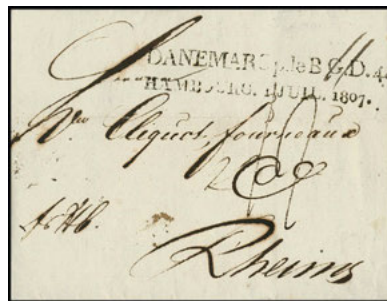 DANEMARC p. le B.G.D. 4
HAMBOURG. 1 JUIL. 1807.
Vve Cliquot, fourneaux
Rheims